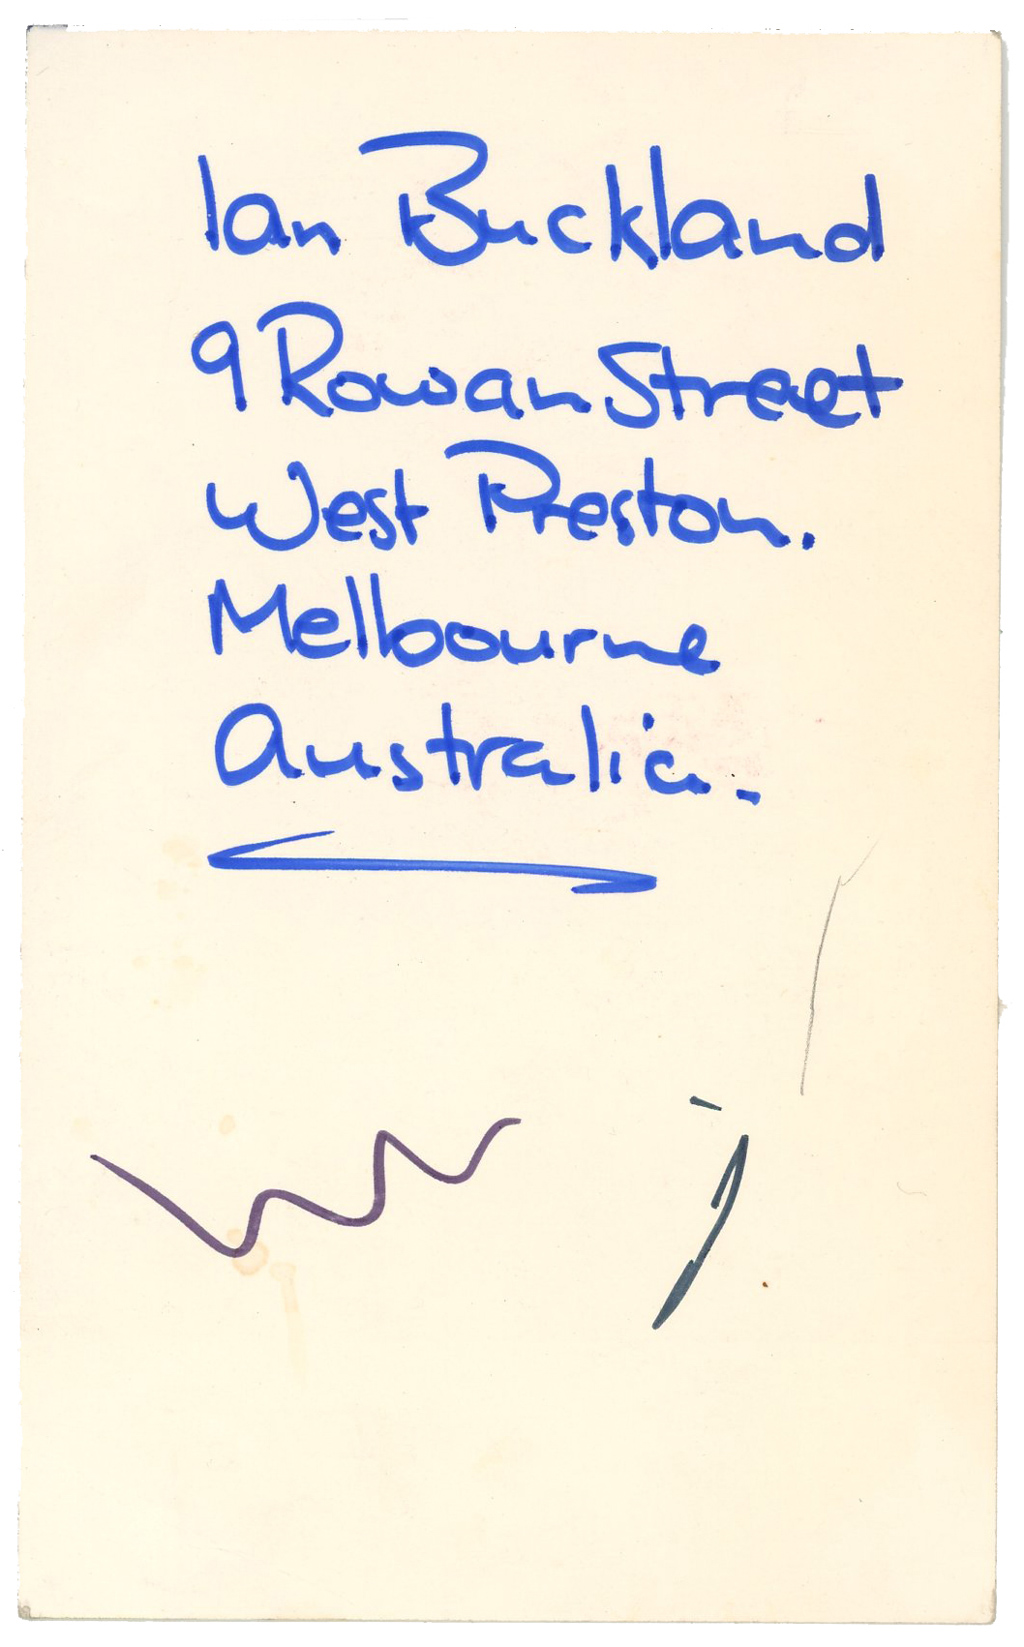 Ian Buckland
9 Rowan Street
West Preston.
Melbourne
Australia.